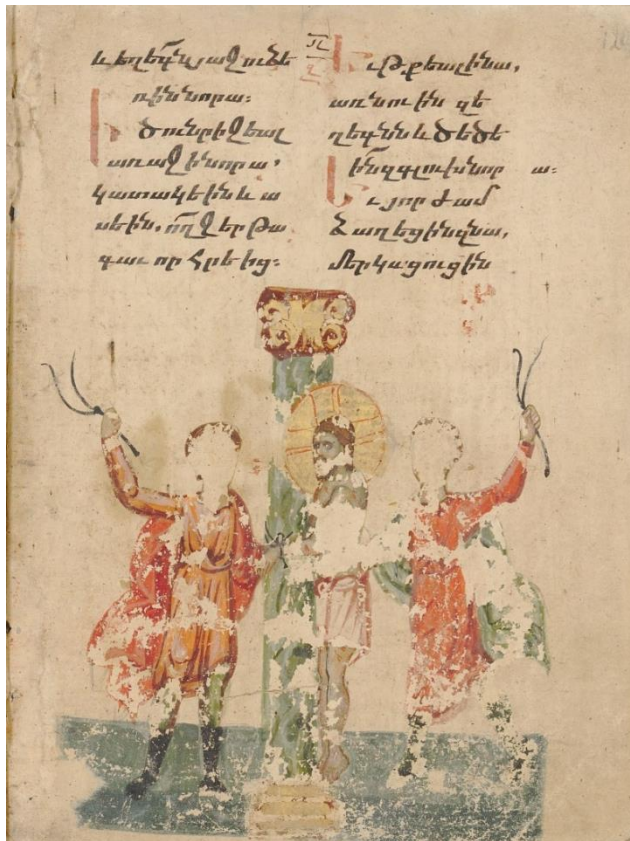 և եղէգն յաջու ձե
ռին նորա։
Ի ծունր իջեալ
առաջի նորա՝
կատակէին և ա
սէին. ո՛ղջ եր թա
գաւոր հրէից։
Եւ թքեալ ի նա,
առնուին զե
ղեգնն և ծեծէ
ին զգլուխ նորա։
Եւ յորժամ
ձաղեցին զնա,
մերկացուցին